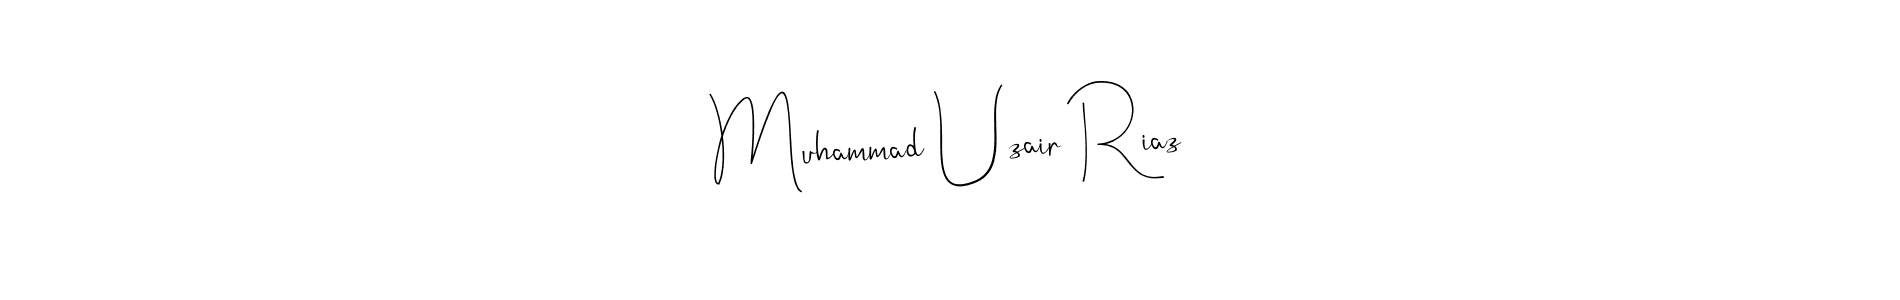 Muhammad Uzair Riaz